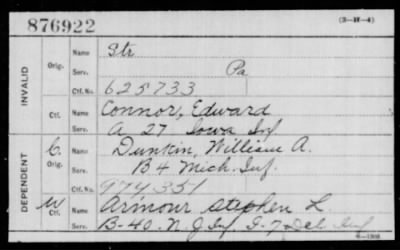 876922
(3-H-4)
INVALID
Orig.
Name Str
Serv. Pa
Ctf. No. 625733
Ctf.
Name Connor, Edward
Serv. A 27 Iowa Inf
DEPENDENT
C. Orig.
Name Dunkin, William A.
Serv. B 4 Mich. Inf.
Ctf. No. 974351
W Ctf.
Name Armour Stephen L.
Serv. B-40. N. J Inf G-7 Del. Inf